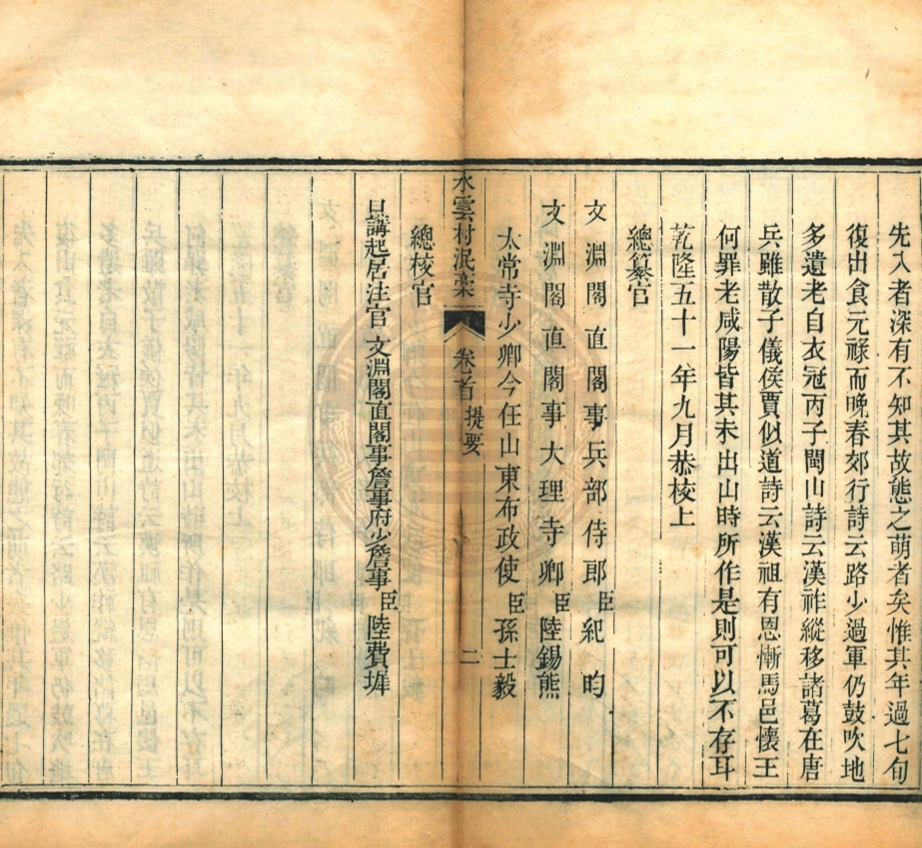 先入者深有不知其故態之萌者矣惟其年過七旬
復出食元祿而晚春郊行詩云路少過軍仍鼓吹地
多遺老自衣冠丙子閩山詩云漢祚縱移諸葛在唐
兵雖散子儀侯賈似道詩云漢祖有恩慚馬邑懷王
何罪老咸陽皆其未出山時所作是則可以不存耳
乾隆五十一年九月恭校上
總纂官
文淵閣直閣事兵部侍郎臣紀昀
文淵閣直閣事大理寺卿臣陸錫熊
太常寺少卿今任山東布政使臣孫士毅
水雲村泯稾 卷首 提要 二
總校官
日講起居注官文淵閣直閣事詹事府少詹事臣陸費墀